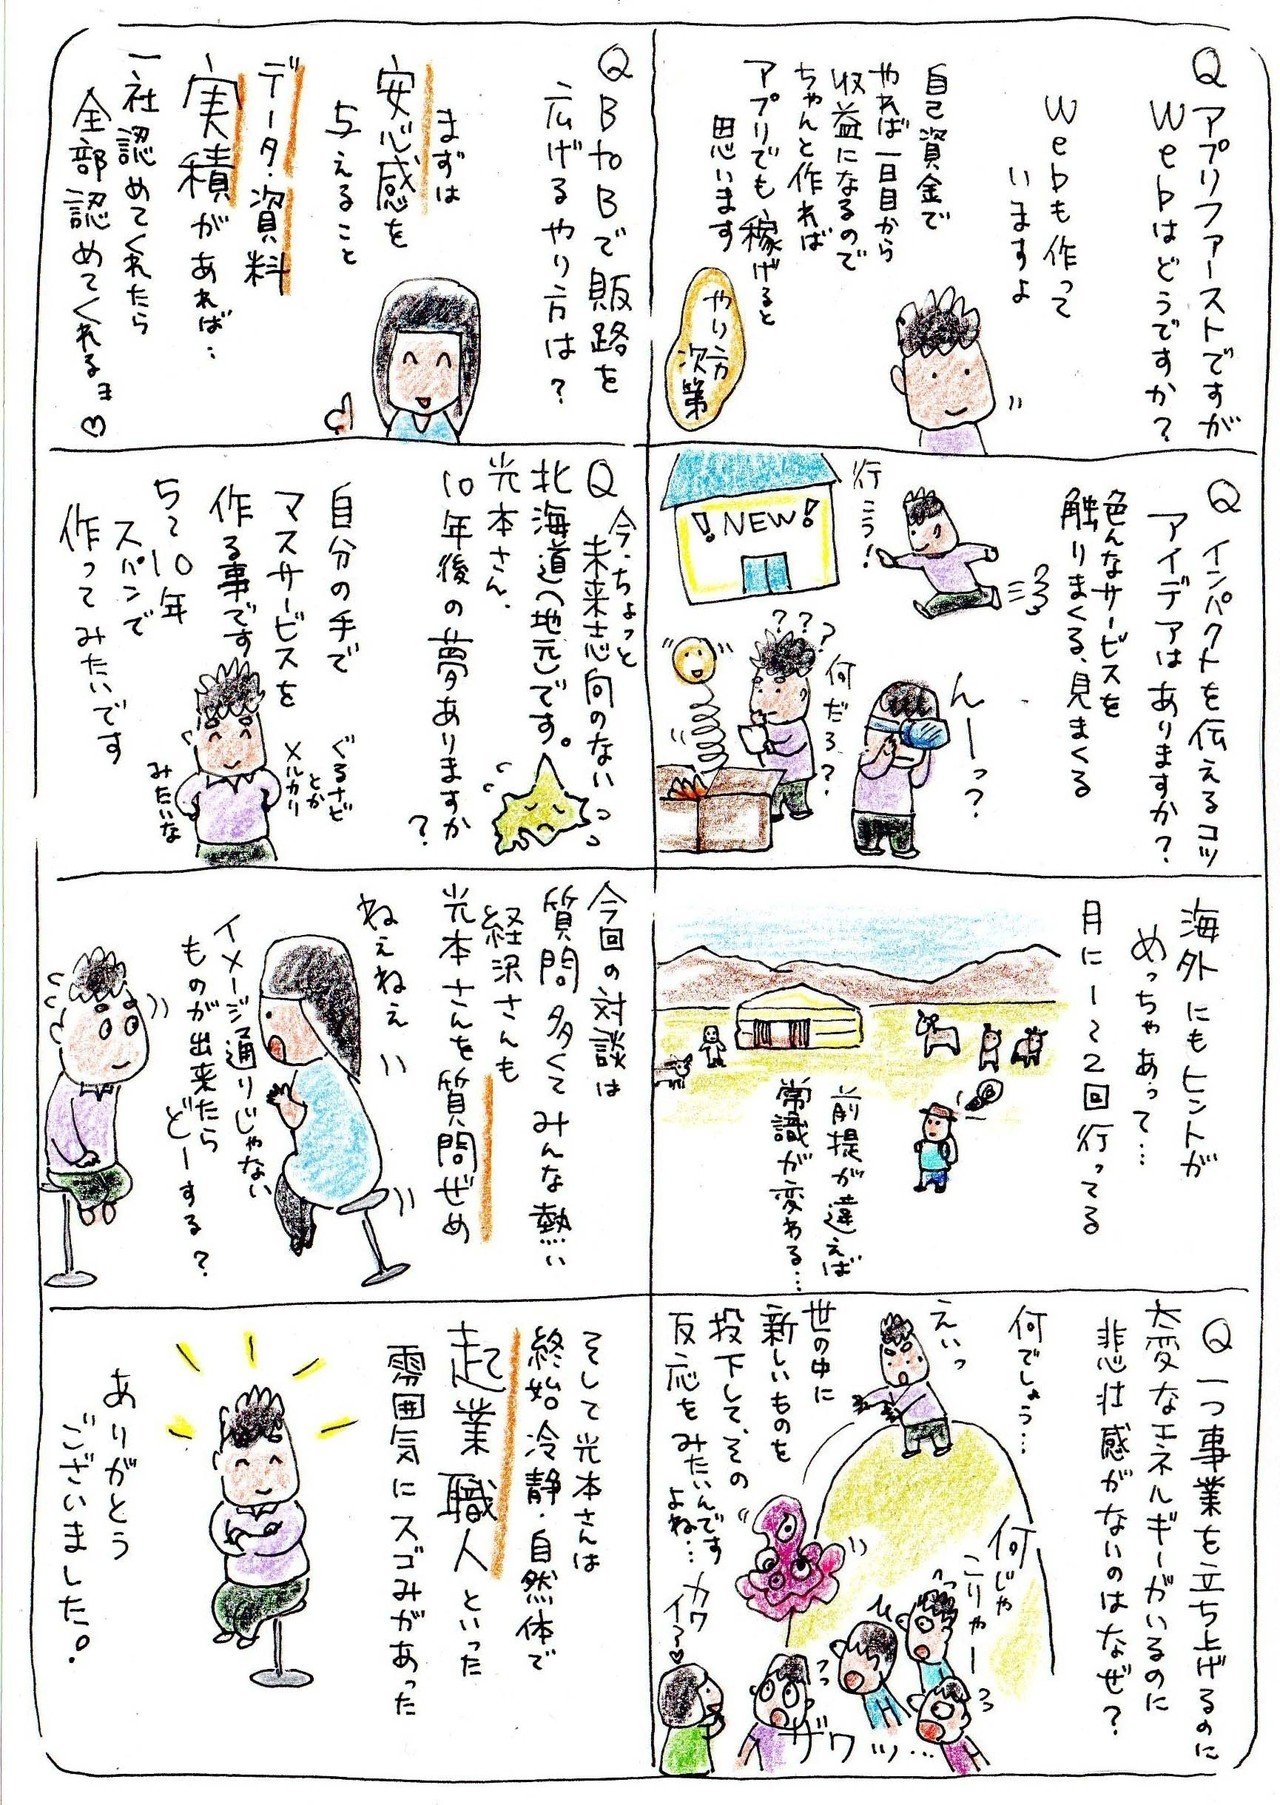 Q アプリファーストですが
Webはどうですか？
Webも作って
いますよ
自己資金で
やれば一日目から
収益になるので
ちゃんと作れば
アプリでも稼げると
思います
やり方
次第
Q BtoBで販路を
広げるやり方は？
まずは
安心感を
与えること
データ・資料
実積があれば…
一社認めてくれたら
全部認めてくれるョ♡
Q インパクトを伝えるコツ
アイデアはありますか？
色んなサービスを
触りまくる、見まくる
行こう！
！NEW！
？？？
何だろ？
んーっ？
Q 今、ちょっと
未来志向のない
北海道（地元）です。
光本さん、
10年後の夢ありますか
？
自分の手で
マスサービスを
作る事です
ぐるナビ
とか
メルカリ
みたいな
5〜10年
スパンで
作ってみたいです
海外にもヒントが
めっちゃあって…
月に1〜2回行ってる
前提が違えば
常識が変わる…
今回の対談は
質問多くてみんな熱い
経沢さんも
光本さんを質問ぜめ
ねぇねぇ
イメージ通りじゃない
ものが出来たら
どーする？
Q 一つ事業を立ち上げるのに
大変なエネルギーがいるのに
悲壮感がないのはなぜ？
何でしょう…
えいっ
世の中に
新しいものを
投下して、その
反応をみたいんです
よね…
何じゃ
こりゃー
カワ
イ〜♡
ザワッ…
そして光本さんは
終始冷静・自然体で
起業職人といった
雰囲気にスゴみがあった
ありがとう
ございました。